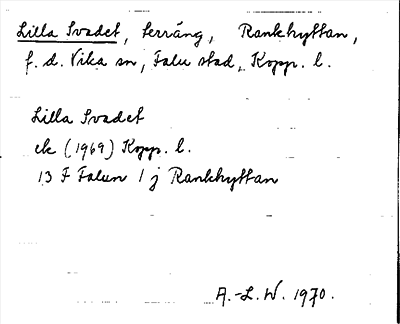 Lilla Svadet, terräng, Rankhyttan,
f. d. Vika sn, Falu stad, Kopp. l.
Lilla Svadet
ek (1969) Kopp. l.
13 F Falun 1 j Rankhyttan
A.-L. W. 1970.